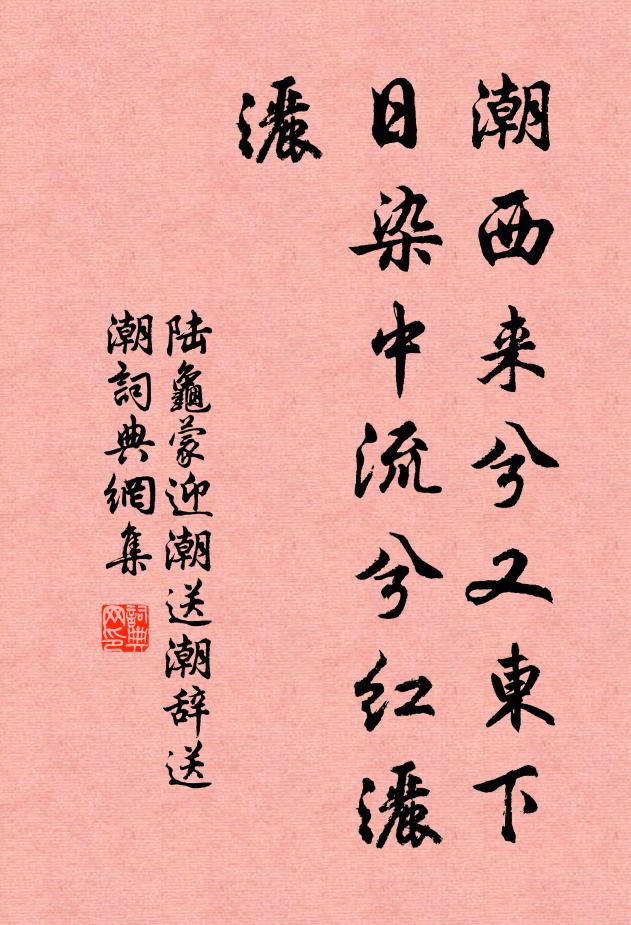 潮西来兮又東下
日染中流兮红灑
灑
陆龜蒙迎潮送潮辞送
潮詞典網集
詞典网印